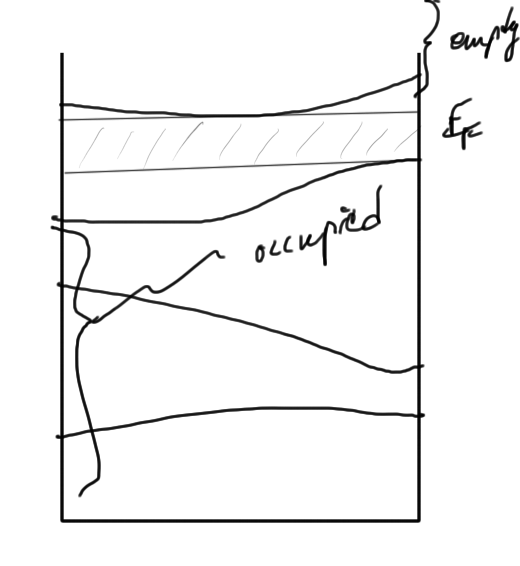 empty
EF
occupied